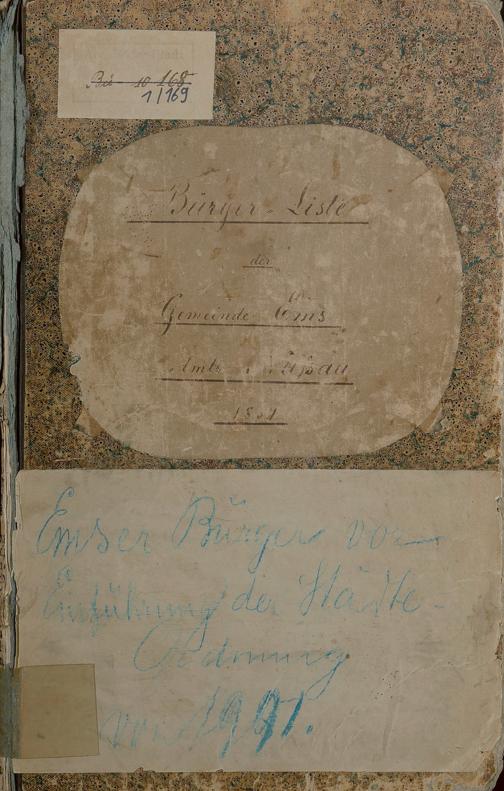 1/169
Bürger-Liste
der
Gemeinde Ems
Amts Nassau
Emser Bürger vor
Einführung der Städte-
Ordnung
von 1891.